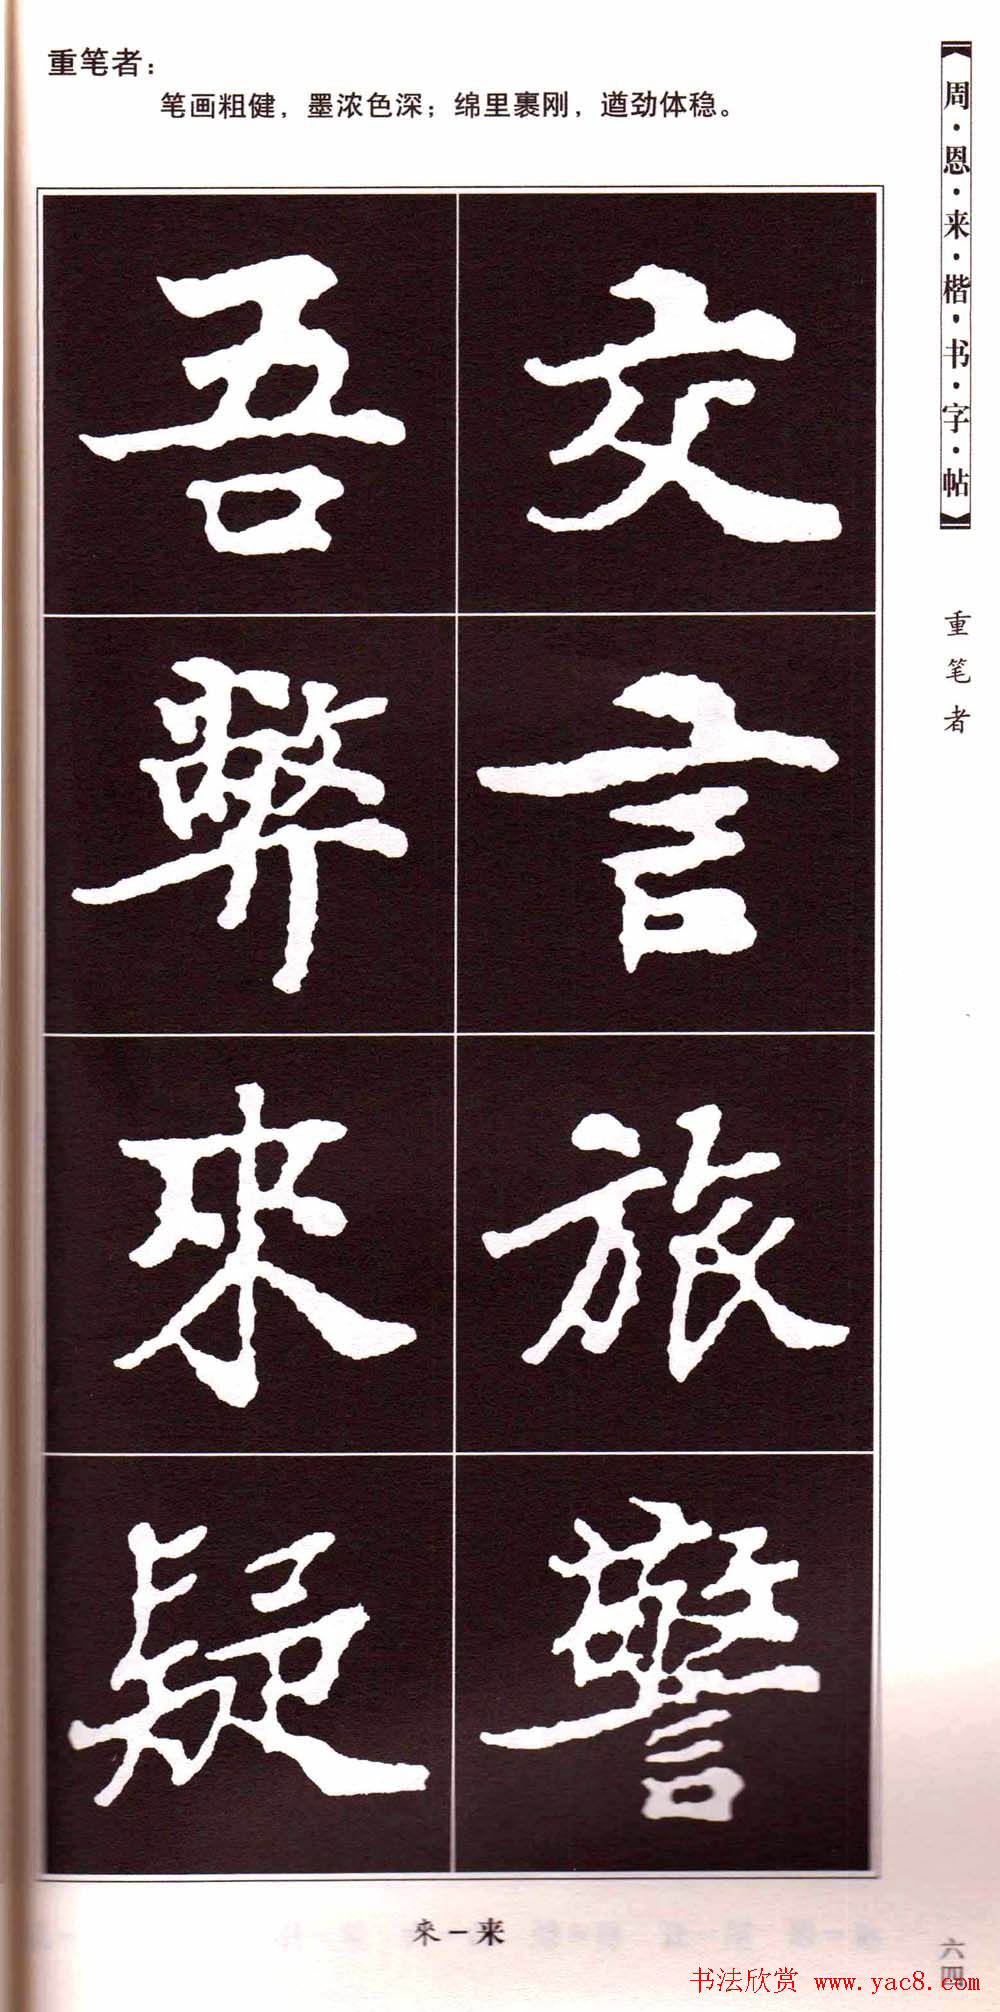 重笔者：
笔画粗健，墨浓色深；绵里裹刚，遒劲体稳。
周·恩·来·楷·书·字·帖
重笔者
交言旅警
吾弊來疑
來－来
六四
书法欣赏 www.yac8.com